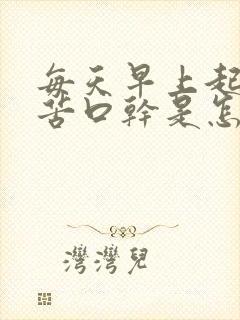 每天早上起
苦口幹是怎
灣灣兒